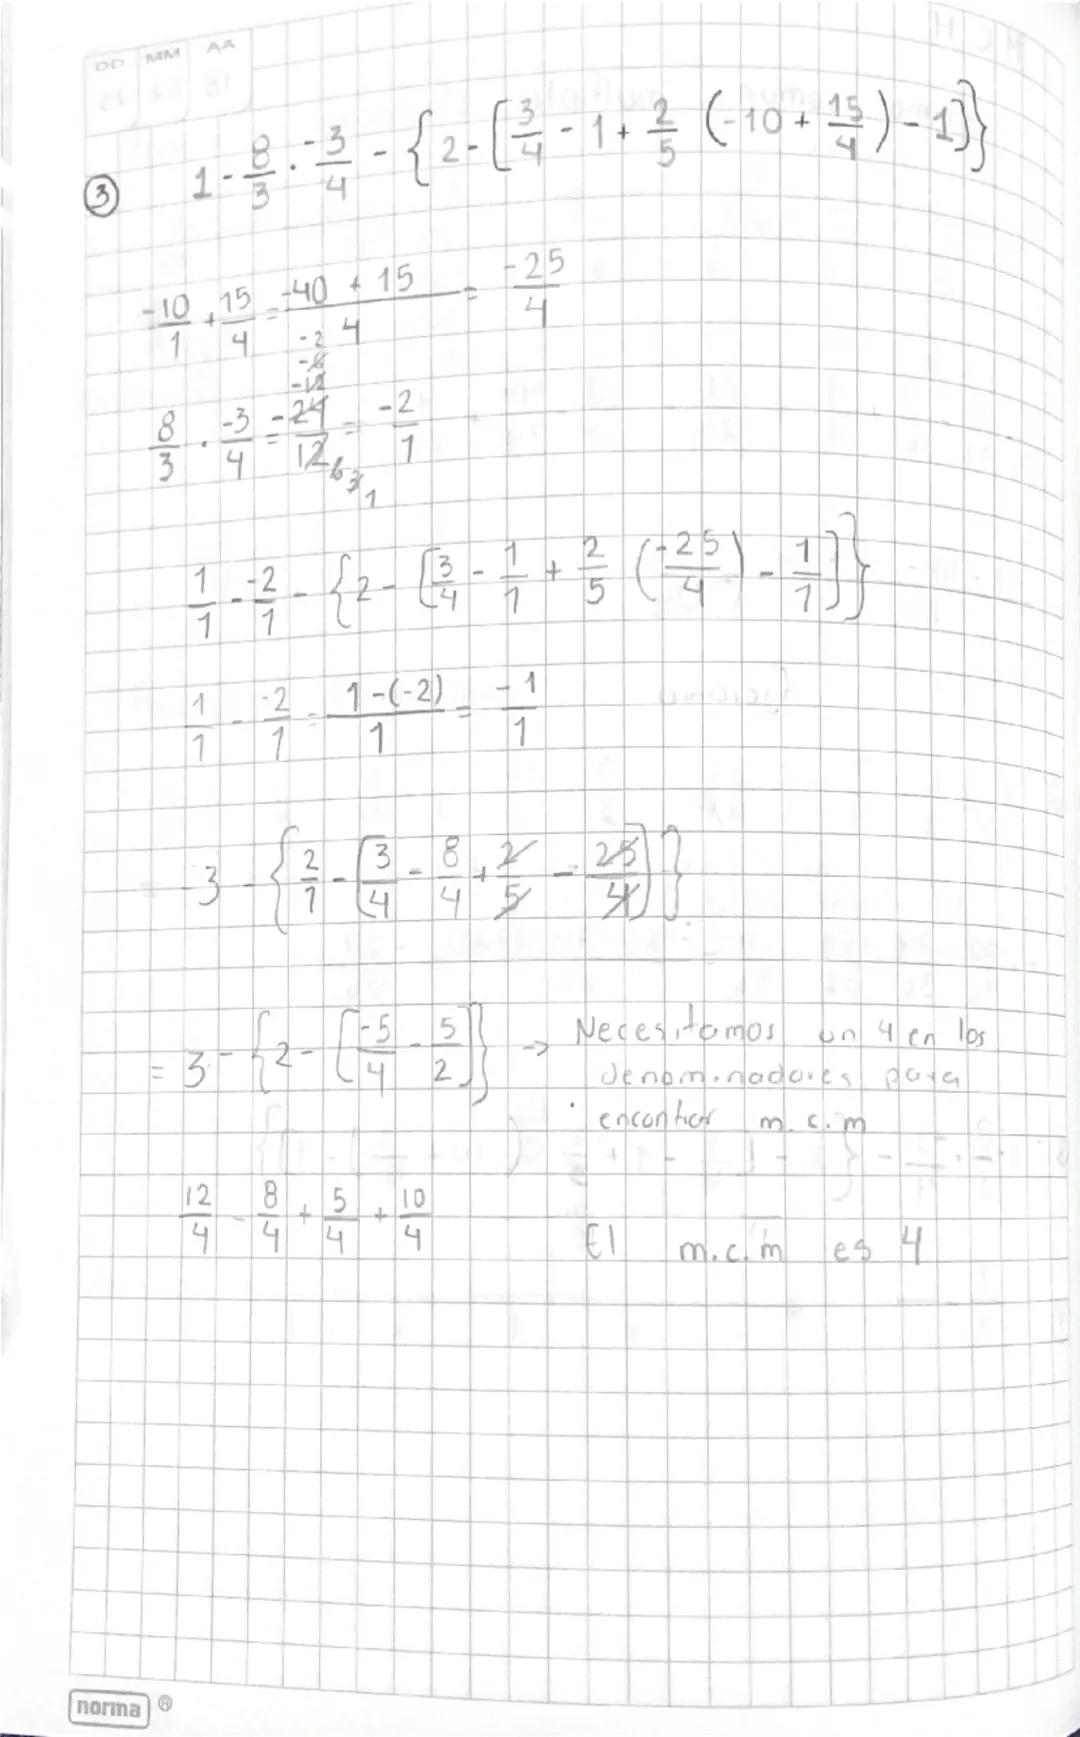 DD MM AA
③ 1 - 8/3 · -3/4 - {2 - [3/4 - 1 + 2/5 (-10 + 15/4) - 1]}
-10/1 + 15/4 = -40 + 15/4 = -25/4
-2
-6
-12
8/3 · -3/4 = -24/12 = -2/1
6 3 1
1/1 - -2/1 - {2 - [3/4 - 1/1 + 2/5 (-25/4) - 1/1]}
1/1 - -2/1 = 1-(-2)/1 = -1/1
-3 - {2/1 - [3/4 - 8/4 + 2/5 - 25/4)}
= 3 - {2 - [-5/4 - 5/2]} → Necesitamos un 4 en los
denominadores para
encontrar m.c.m
12/4 - 8/4 + 5/4 + 10/4
El m.c.m es 4
norma ®